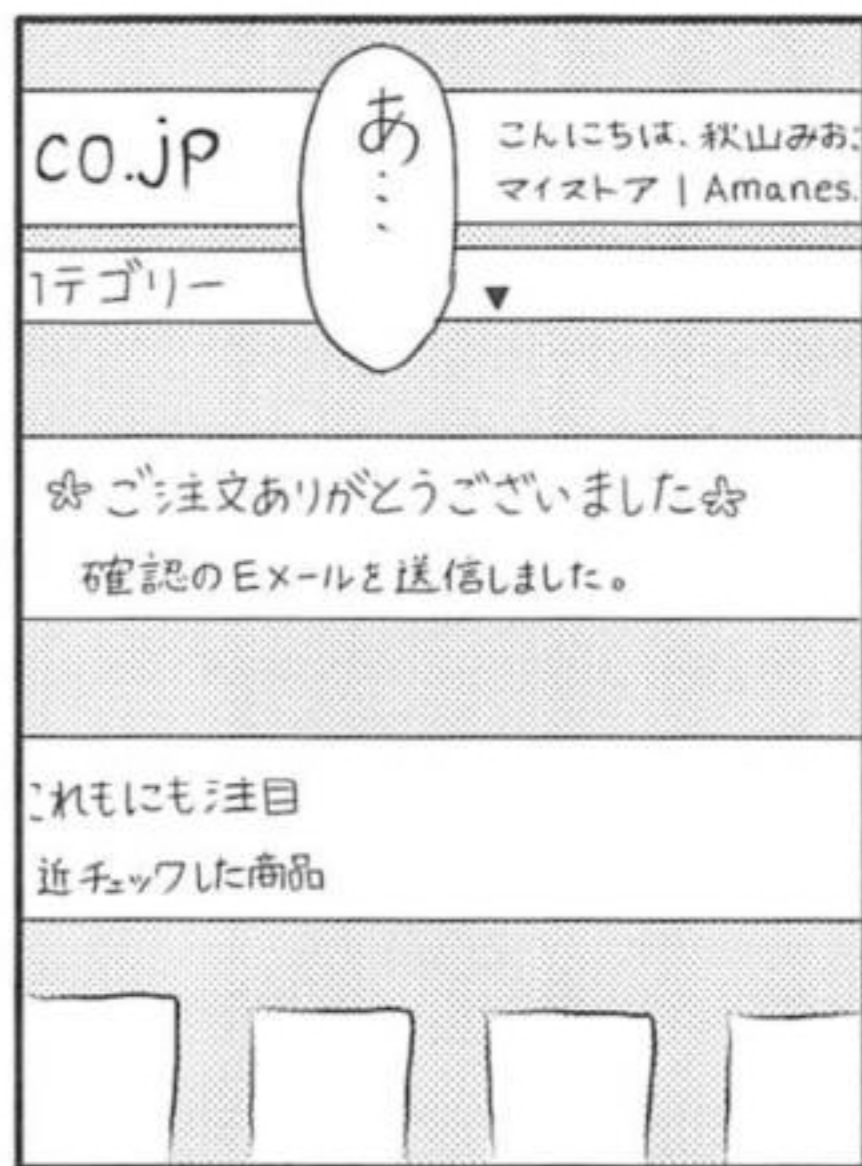 co.jp
あ…
こんにちは、秋山みお
マイストア | Amanes.
テゴリー ▼
☆ご注文ありがとうございました☆
確認のEメールを送信しました。
これもにも注目
近チェックした商品